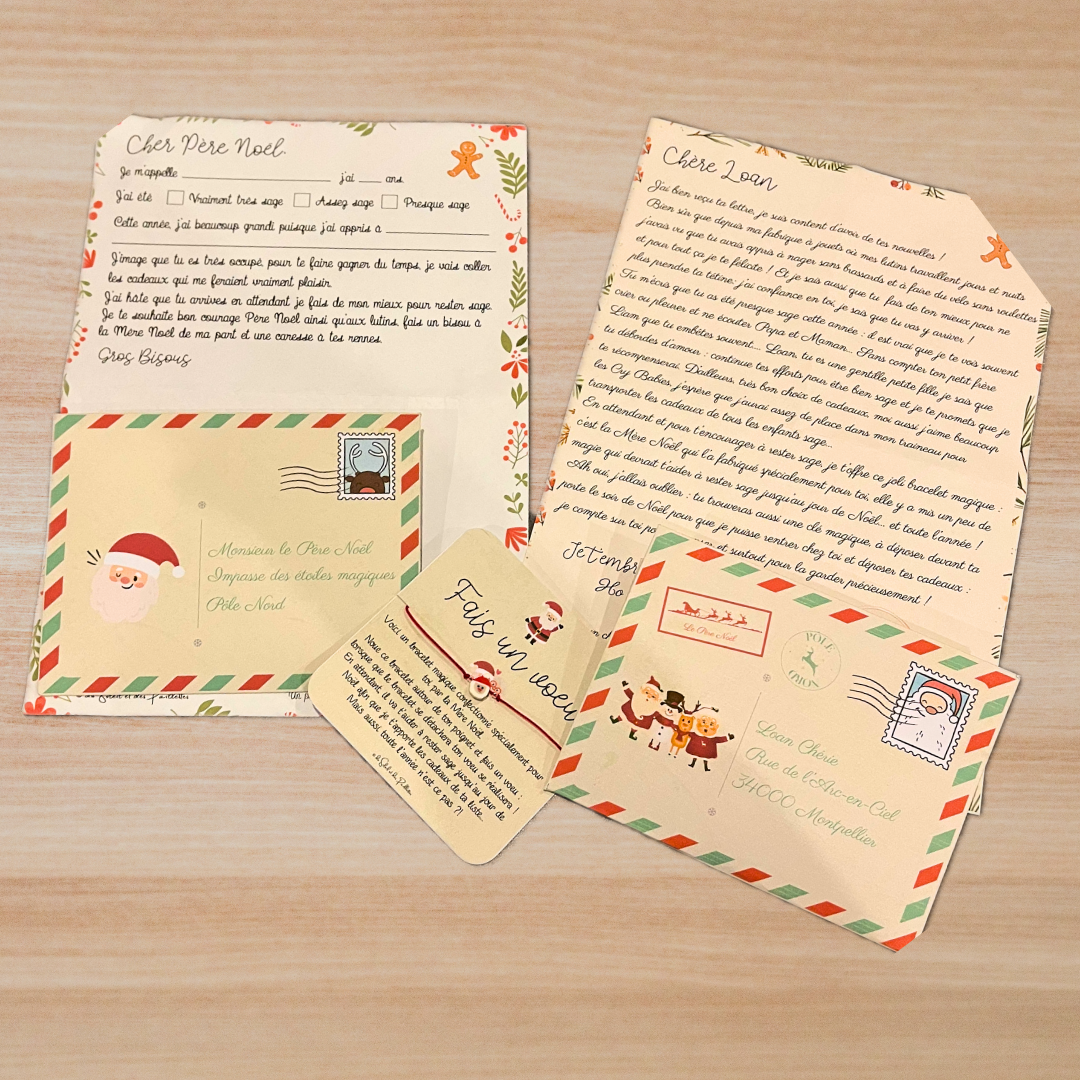 Cher Père Noël,
Je m'appelle ____________ j'ai ____ ans.
J'ai été Vraiment très sage Assez sage Presque sage
Cette année, j'ai beaucoup grandi puisque j'ai appris à ____________
J'image que tu es très occupé, pour te faire gagner du temps, je vais coller
les cadeaux qui me feraient vraiment plaisir.
J'ai hâte que tu arrives en attendant je fais de mon mieux pour rester sage.
Je te souhaite bon courage Père Noël ainsi qu'aux lutins, fais un bisou à
la Mère Noël de ma part et une caresse à tes rennes.
Gros Bisous
Monsieur le Père Noël
Impasse des étoiles magiques
Pôle Nord
Chère Loan
J'ai bien reçu ta lettre, je suis content d'avoir de tes nouvelles !
Bien sûr que depuis ma fabrique à jouets où mes lutins travaillent jours et nuits
j'avais vu que tu avais appris à nager sans brassards et à faire du vélo sans roulettes
et pour tout ça je te félicite ! Et je sais aussi que tu fais de ton mieux pour ne
plus prendre ta tétine, j'ai confiance en toi, je sais que tu vas y arriver !
Tu m'écris que tu as été presque sage cette année : il est vrai que je te vois souvent
crier ou pleurer et ne écouter Papa et Maman... Sans compter ton petit frère
Liam que tu embêtes souvent.... Loan, tu es une gentille petite fille je sais que
tu débordes d'amour : continue tes efforts pour être bien sage et je te promets que je
te récompenserai. D'ailleurs, très bon choix de cadeaux, moi aussi j'aime beaucoup
les Cry Babies, j'espère que j'aurai assez de place dans mon traineau pour
transporter les cadeaux de tous les enfants sage...
En attendant et pour t'encourager à rester sage, je t'offre ce joli bracelet magique :
c'est la Mère Noël qui l'a fabriqué spécialement pour toi, elle y a mis un peu de
magie qui devrait t'aider à rester sage jusqu'au jour de Noël... et toute l'année !
Ah oui, j'allais oublier : tu trouveras aussi une clé magique, à déposer devant ta
porte le soir de Noël pour que je puisse rentrer chez toi et déposer tes cadeaux :
je compte sur toi et surtout pour la garder précieusement !
Je t'embr
Ho
Fais un voeu
Voici un bracelet magique confectionné spécialement pour
toi, par la Mère Noël.
Noue ce bracelet autour de ton poignet et fais un voeu :
lorsque que le bracelet se détachera ton voeu se réalisera !
En attendant, il va t'aider à rester sage jusqu'au jour de
Noël afin que je t'apporte les cadeaux de ta liste...
Mais aussi, toute l'année n'est ce pas ?!
Le Père Noël
PÔLE
Loan Chérie
Rue de l'Arc-en-Ciel
34000 Montpellier